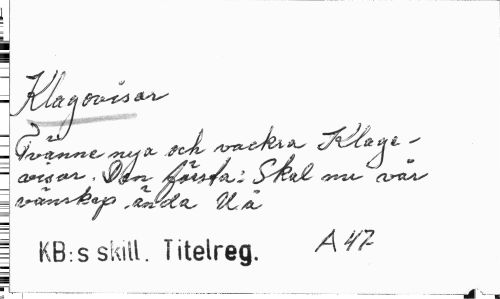 Klagovisor
Tvänne nya och vackra Klage-
visor. Den första: Skal nu vår
vänskap ända U.å
KB:s skill. Titelreg. A 47